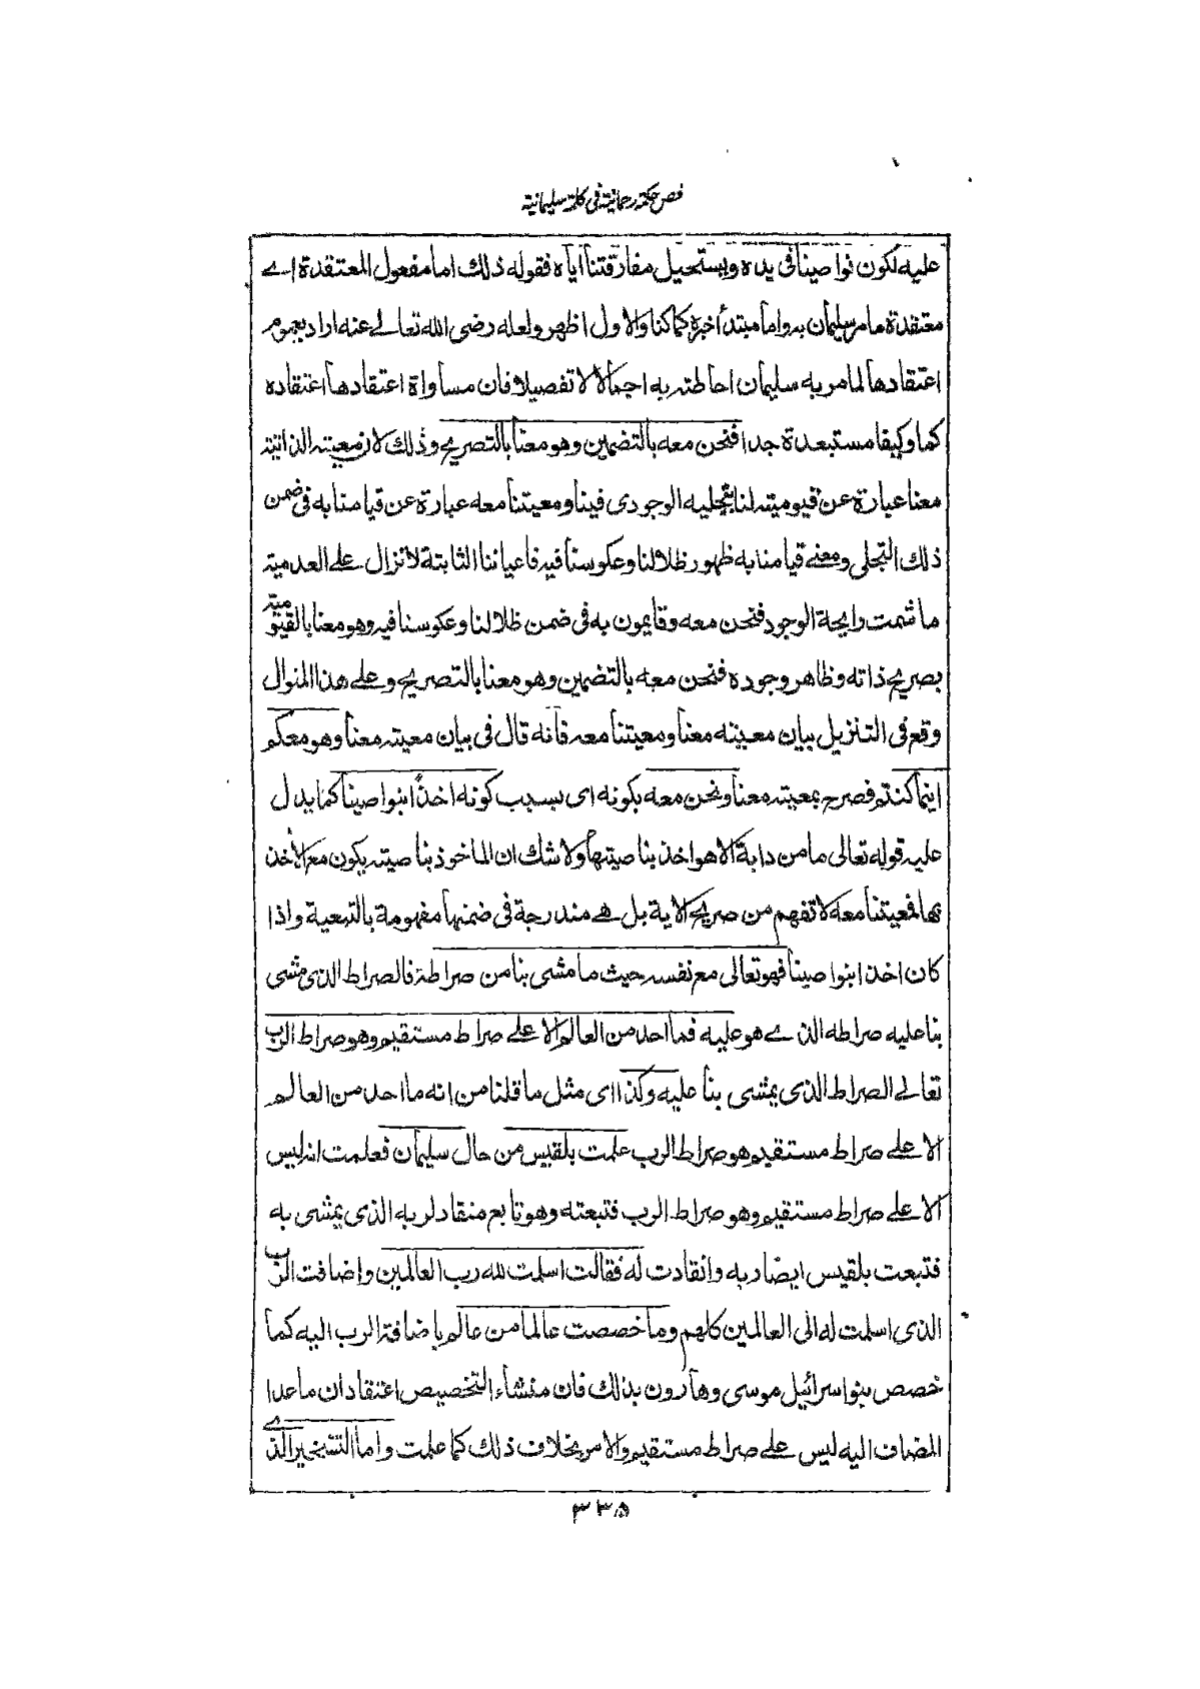 فص حكمة رحمانية في كلمة سليمانية
عليه لكون نواصينا في يده ويستحيل مفارقتنا اياه فقوله ذلك اما مفعول المعتقدة اے
معتقدة ما مر سليمان به واما مبتدأ خبره كما كنا والاول اظهر ولعله رضى الله تعالے عنه اراد بعموم
اعتقادها لما مر به سليمان احاطته به اجمالا لا تفصيلا فان مساواة اعتقادها اعتقاده
كما وكيفا مستبعدة جدا فنحن معه بالتضمين وهو معنا بالتصريح وذلك لان معيته الذاتية
معنا عبارة عن قيوميته لنا بتجليه الوجودى فينا ومعيتنا معه عبارة عن قيامنا به فى ضمن
ذلك التجلى ومعنے قيامنا به ظهور ظلالنا وعكوسنا فيه فاعياننا الثابتة لا تزال علے العدمية
ما شمت رايحة الوجود فنحن معه وقايمون به فى ضمن ظلالنا وعكوسنا فيه وهو معنا بالقيومية
بصريح ذاته وظاهر وجوده فنحن معه بالتضمين وهو معنا بالتصريح وعلے هذا المنوال
وقع فى التنزيل بيان معيته معنا ومعيتنا معه فانه قال فى بيان معيته معنا وهو معكم
اينما كنتم فصرح بمعيته معنا ونحن معه بكونه اى بسبب كونه اخذا بنواصينا كما يدل
عليه قوله تعالى ما من دابة الا هو اخذ بناصيتها ولا شك ان الماخوذ بناصيته يكون مع الأخذ
بها فمعيتنا معه لا تفهم من صريح الاية بل هے مندرجة فى ضمنها مفهومة بالتبعية واذا
كان اخذا بنواصينا فهو تعالى مع نفسه حيث ما مشى بنا من صراطة فالصراط الذى مشى
بنا عليه صراطه الذے هو عليه فما احد من العالم الا علے صراط مستقيم وهو صراط الرب
تعالے الصراط الذى يمشى بنا عليه وكذا اى مثل ما قلنا من انه ما احد من العالم
الا علے صراط مستقيم وهو صراط الرب علمت بلقيس من حال سليمان فعلمت انه ليس
الا علے صراط مستقيم وهو صراط الرب فتبعته وهو تابع منقاد لربه الذى يمشى به
فتبعت بلقيس ايضا ربه وانقادت له فقالت اسلمت لله رب العالمين واضافت الرب
الذى اسلمت له الى العالمين كلهم وما خصصت عالما من عالم باضافة الرب اليه كما
خصص بنو اسرائيل موسى وهارون بذلك فان منشاء التخصيص اعتقاد ان ما عدا
المضاف اليه ليس علے صراط مستقيم والامر بخلاف ذلك كما علمت واما التسخير الذے
٣٣٥